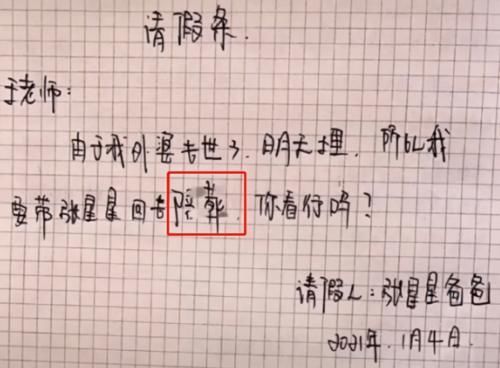 请假条.
于老师:
由于我外婆去世了.明天埋.所以我
要带张星星回去陪葬.你看行吗?
请假人:张星星爸爸
2021年.1月4日.